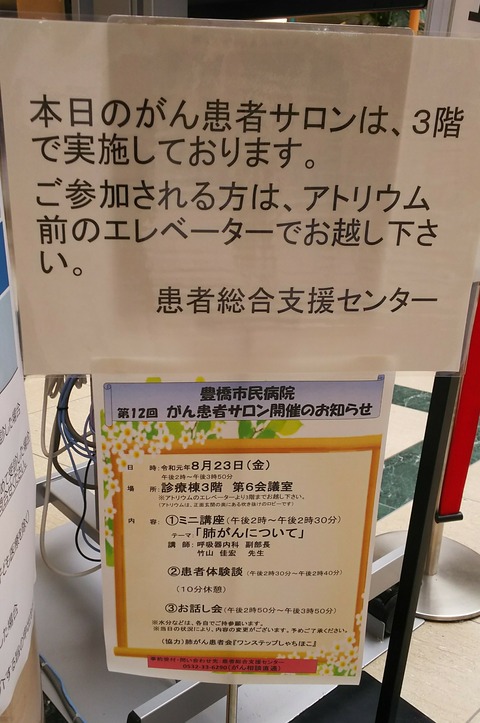 本日のがん患者サロンは、3階
で実施しております。
ご参加される方は、アトリウム
前のエレベーターでお越し下さ
い。
患者総合支援センター
豊橋市民病院
第12回 がん患者サロン開催のお知らせ
日 時:令和元年8月23日(金)
午後2時~午後3時50分
場 所:診療棟3階 第6会議室
※アトリウムのエレベーターより3階までお越し下さい。
(アトリウムは、正面玄関の奥にある吹き抜けのロビーです)
内 容:①ミニ講座(午後2時~午後2時30分)
テーマ:「肺がんについて」
講 師:呼吸器内科 副部長
竹山 佳宏 先生
②患者体験談(午後2時30分~午後2時40分)
(10分休憩)
③お話し会(午後2時50分~午後3時50分)
※水分などは、各自でご持参願います。
※当日の状況により、内容の変更がございます。予めご了承ください。
(協力)肺がん患者会『ワンステップしゃちほこ』
事前受付・問い合わせ先:患者総合支援センター
0532-33-6290(がん相談直通)